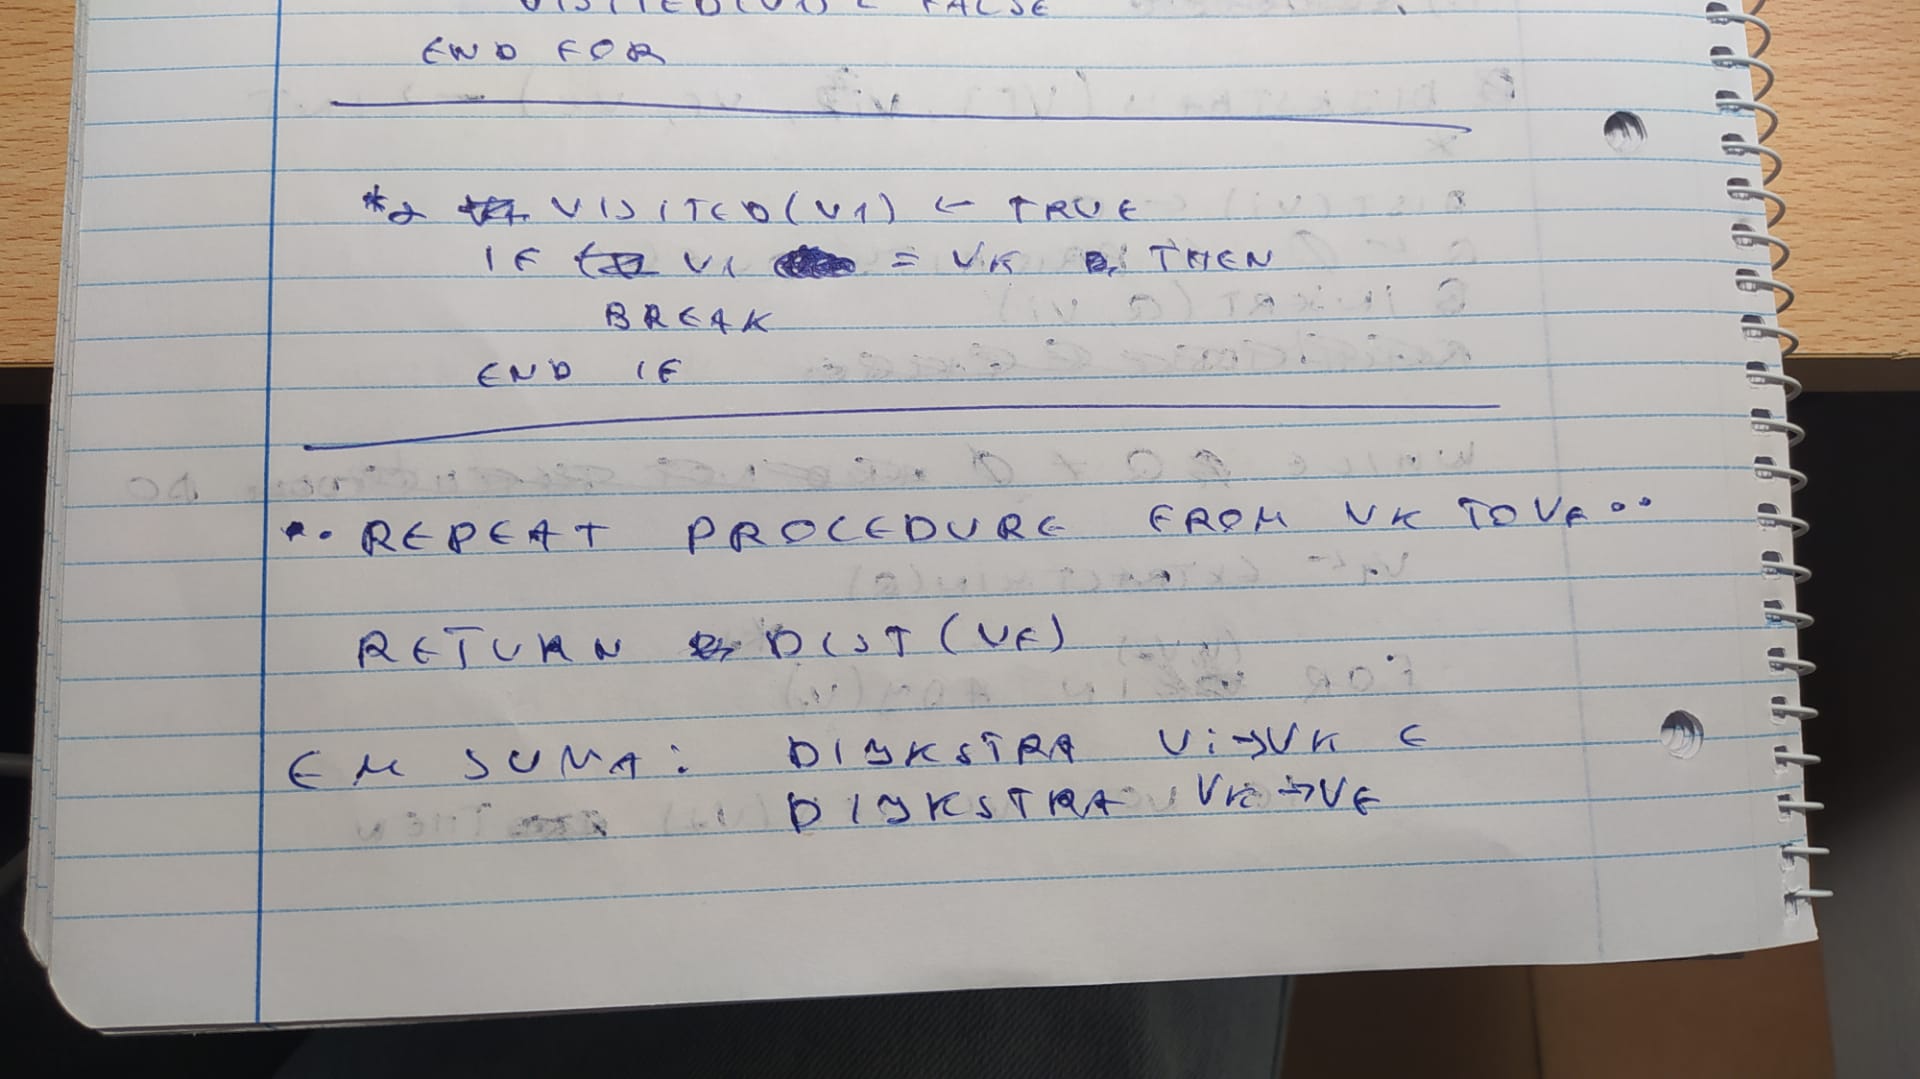 VISITED(V1) ← FALSE
END FOR
*2 VISITED(V1) ← TRUE
IF V1 = VK THEN
BREAK
END IF
•• REPEAT PROCEDURE FROM VK TO VF ••
RETURN DIST(VF)
EM SUMA: DIJKSTRA Vi→VK E
DIJKSTRA VK→VF